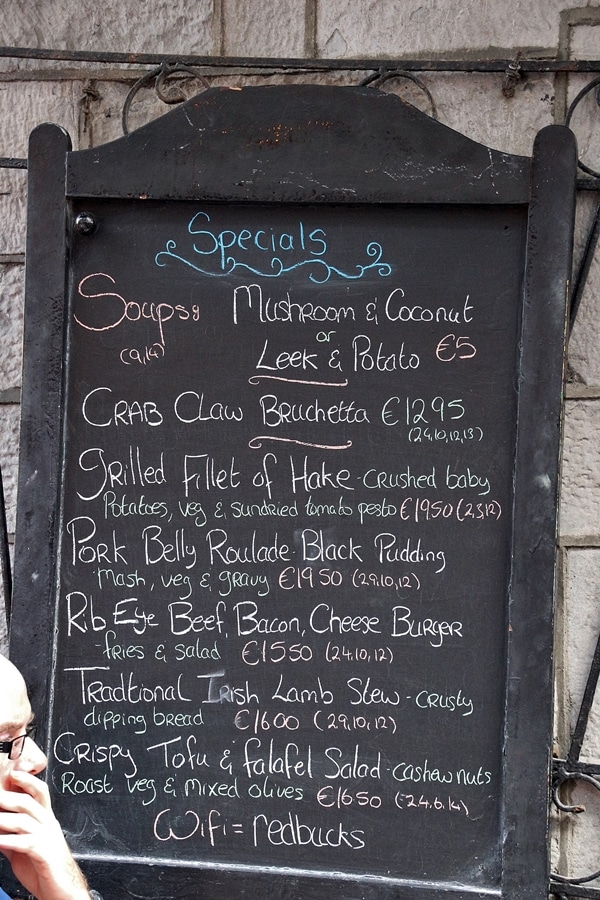 Specials
Soups: Mushroom & Coconut
or
(9,14) Leek & Potato €5
Crab Claw Bruchetta €1295
(2,9,10,12,13)
Grilled Fillet of Hake - crushed baby
Potatoes, veg & sundried tomato pesto €1950 (2,3,12)
Pork Belly Roulade Black Pudding
mash, veg & gravy €1950 (2,9,10,12)
Rib Eye Beef, Bacon, Cheese Burger
-fries & salad €1550 (2,4,10,12)
Tradtional Irish Lamb Stew - crusty
dipping bread €1600 (2,9,10,12)
Crispy Tofu & falafel Salad - cashew nuts
Roast veg & mixed olives €1650 (2,4,6,14)
Wifi = redbucks